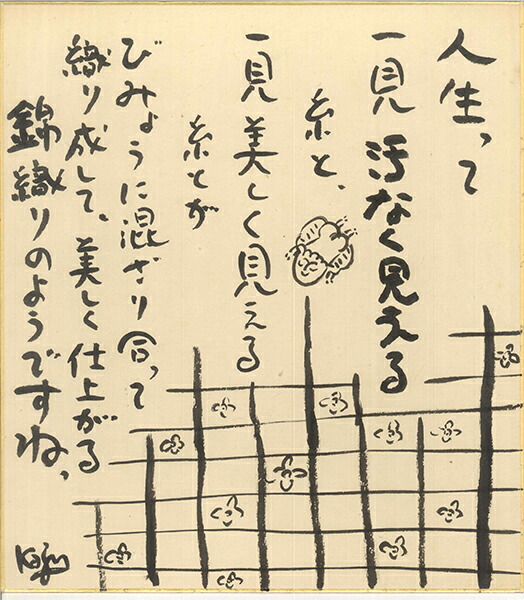 人生って
一見 汚なく見える
糸と、
一見 美しく見える
糸とが
びみょうに混ざり合って
織り成して、美しく仕上がる
錦織りのようですね。